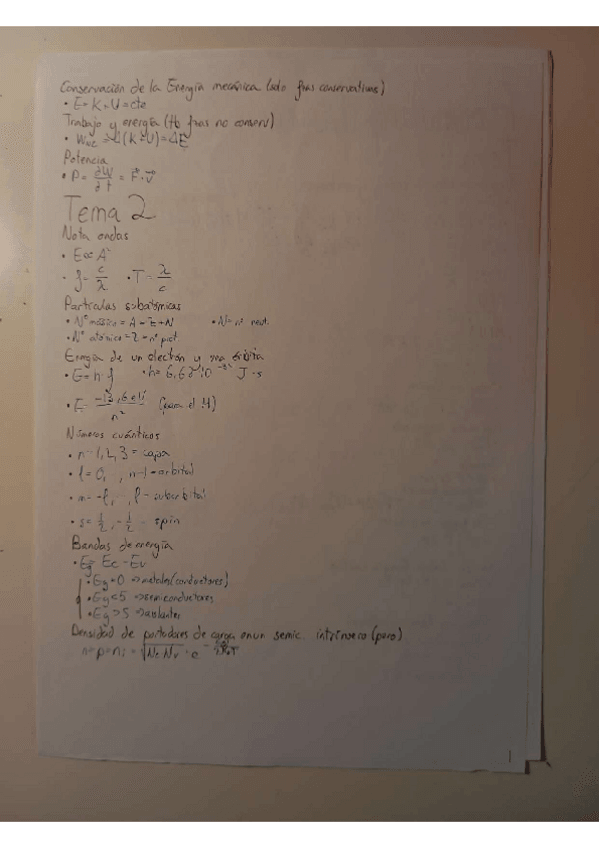 Conservación de la Energía mecánica (solo fzas conservativas)
• E=K+U=cte
Trabajo y energía (tb fzas no conserv)
• W_NC = Δ(K+U)=ΔE
Potencia
• P= dW/dt = F⃗·v⃗
Tema 2
Nota ondas
• E∝A²
• f= c/λ • T= λ/c
Partículas subatómicas
• Nº másico = A = Z+N • N= nº neut.
• Nº atómico = Z = nº prot.
Energía de un electrón y una órbita
• E=h·f • h= J·s
• E= -13,6 eV/n² (para el H)
Números cuánticos
• n=1,2,3 = capa
• l=0, , n-1 = orbital
• m=-l, , l = suborbital
• s= 1/2, -1/2 = spin
Bandas de energía
• Eg= Ec-Ev
• Eg=0 => metales (conductores)
• Eg<5 => semiconductores
• Eg>5 => aislantes
Densidad de portadores de carga en un semic. intrínseco (puro)
n=p=ni = √Nc Nv · e
1